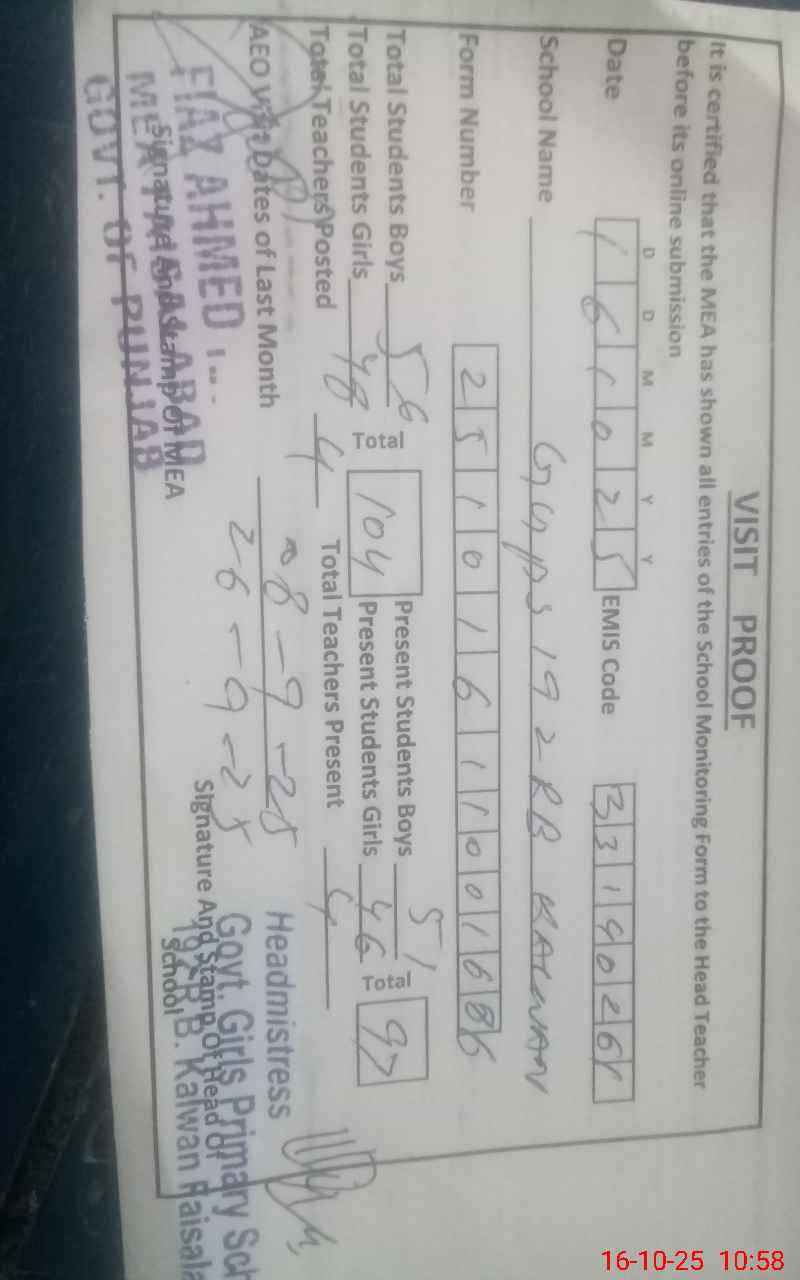 VISIT PROOF
It is certified that the MEA has shown all entries of the School Monitoring Form to the Head Teacher
before its online submission
D D M M Y Y
Date 1 6 1 0 2 5 EMIS Code 3 3 1 9 0 2 6
School Name GGPS 192 RB KALWAN
Form Number 2 5 1 0 1 6 1 1 0 0 1 6
Total Students Boys 56 Present Students Boys 51
Total Students Girls 48 Total 104 Present Students Girls 46 Total 97
Total Teachers Posted 4 Total Teachers Present 4
AEO Visit Dates of Last Month 8-9-25
26-9-25
Headmistress
Govt. Girls Primary Sch
B. Kalwan Faisala
Signature And Stamp Of Head Of
School
FIAZ AHMED
Signature And Stamp Of MEA
GOVT. OF PUNJAB
16-10-25 10:58